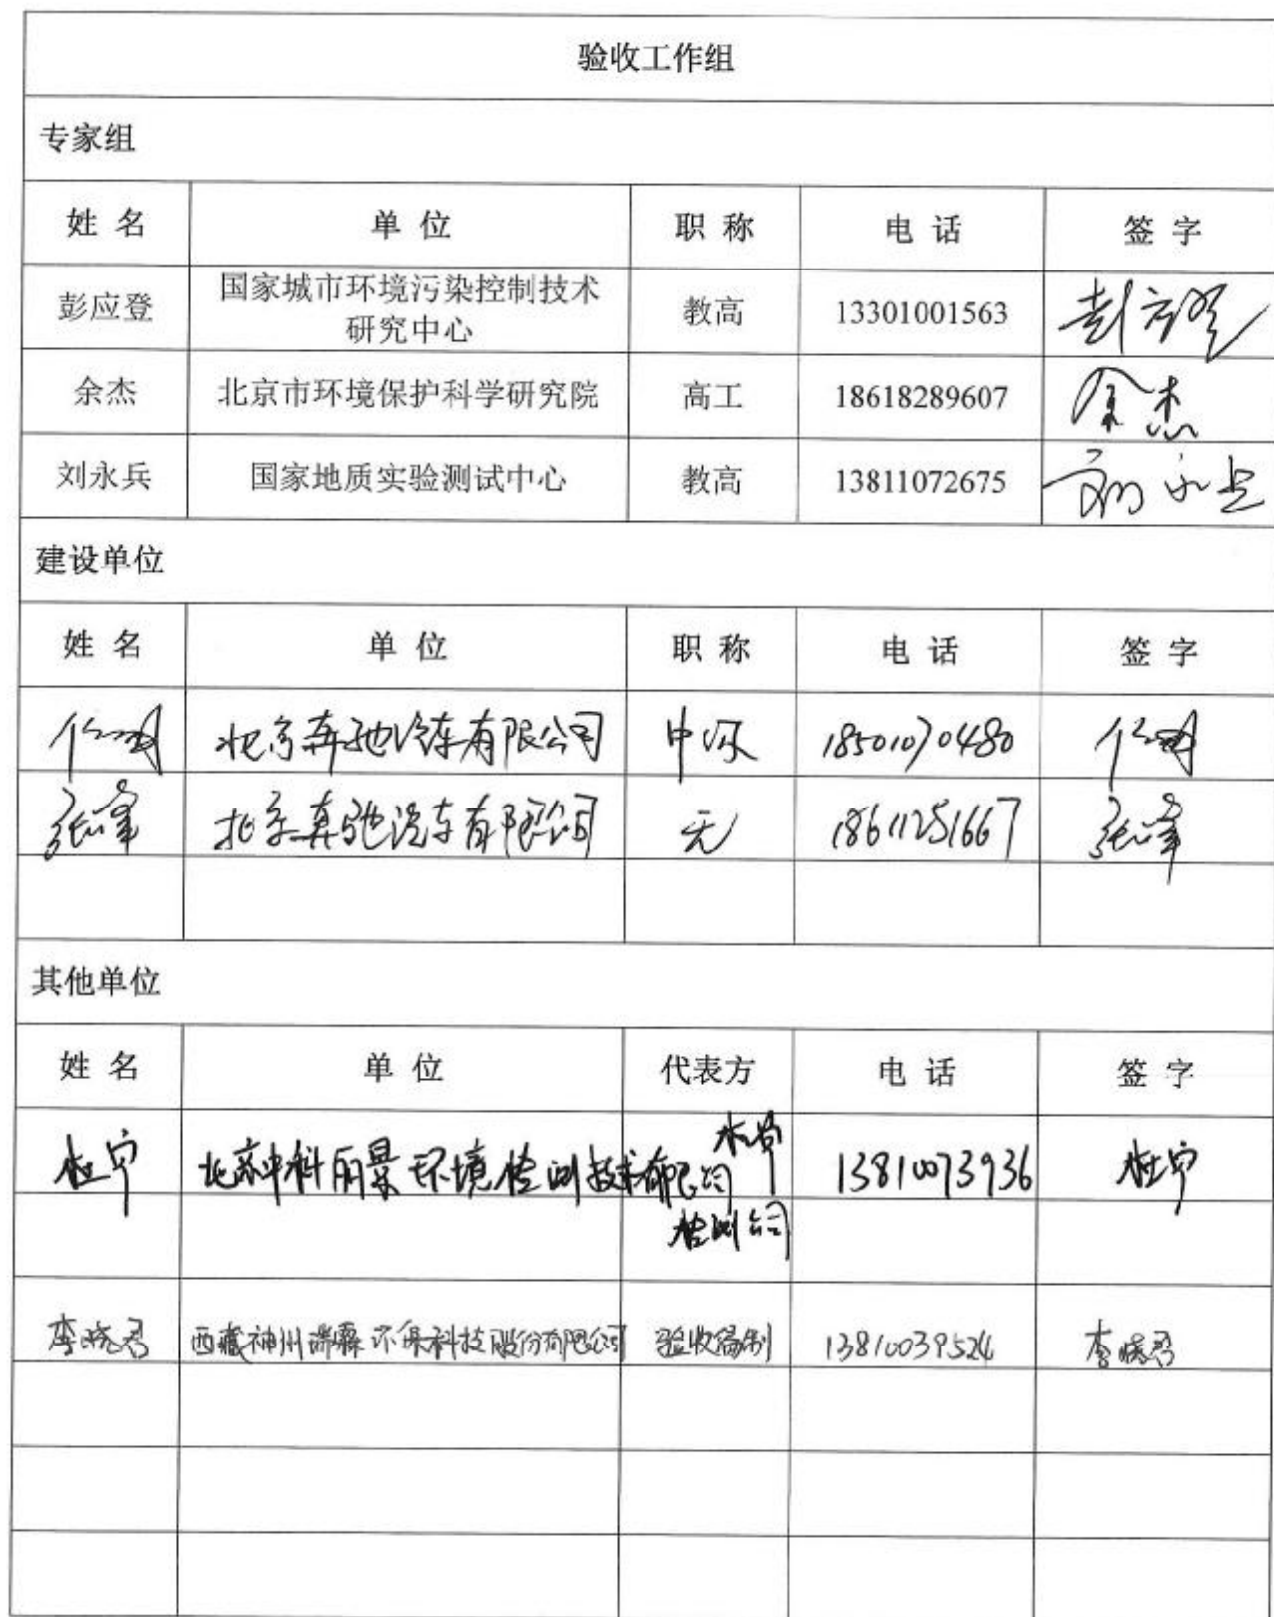 验收工作组
专家组
姓 名 单 位 职 称 电 话 签 字
彭应登 国家城市环境污染控制技术研究中心 教高 13301001563 彭应登
余杰 北京市环境保护科学研究院 高工 18618289607 余杰
刘永兵 国家地质实验测试中心 教高 13811072675 刘永兵
建设单位
姓 名 单 位 职 称 电 话 签 字
北京奔驰汽车有限公司 中级 18501070480
张峰 北京奔驰汽车有限公司 无 18611251667 张峰
其他单位
姓 名 单 位 代表方 电 话 签 字
杜宁 北京中科丽景环境检测技术有限公司 杜宁 13810073936 杜宁
检测公司
李晓君 西藏神州瑞霖环保科技股份有限公司 验收编制 13810039524 李晓君